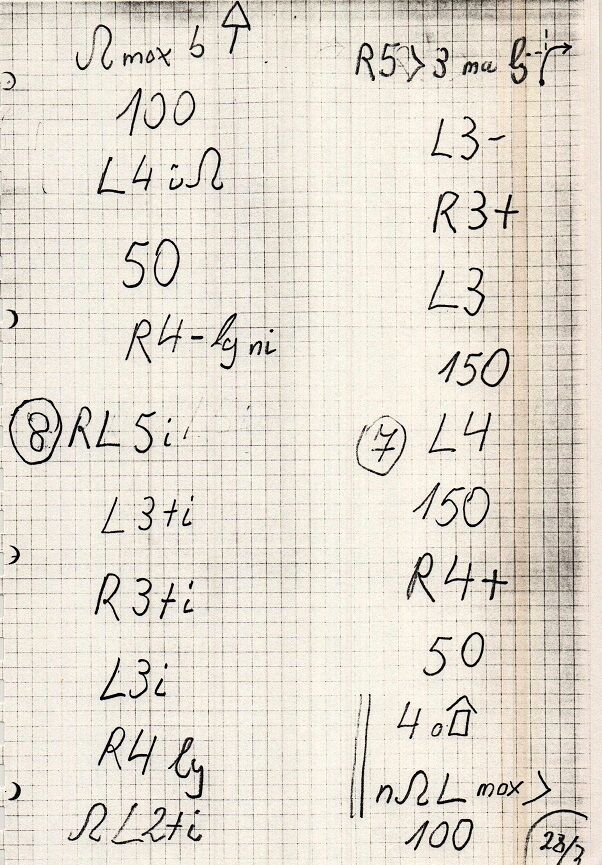 Ω max b ↑
100
L4 i Ω
50
R4 - lg ni
8 RL 5i
L3+i
R3+i
L3i
R4 lg
Ω L2+i
R5 > 3 ma lg
L3-
R3+
L3
150
7 L4
150
R4+
50
4
nΩL max >
100